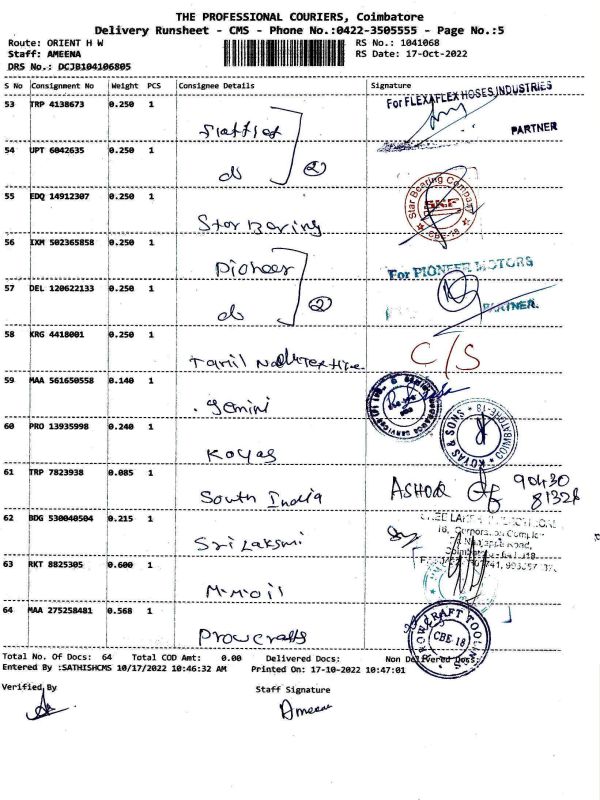 THE PROFESSIONAL COURIERS, Coimbatore
Delivery Runsheet - CMS - Phone No.:0422-3505555 - Page No.:5
Route: ORIENT H W RS No.: 1041068
Staff: AMEENA RS Date: 17-Oct-2022
DRS No.: DCJB104106805
S No Consignment No Weight PCS Consignee Details Signature
53 TRP 4138673 0.250 1
For FLEXAFLEX HOSES INDUSTRIES
PARTNER
54 UPT 6042635 0.250 1
do 2
55 EDQ 14912307 0.250 1
Star Bearing Company
SKF
CBE-18
Star Baring
56 IXM 502365858 0.250 1
Pioneer
For PIONEER MOTORS
57 DEL 120622133 0.250 1
do 2
PARTNER.
58 KRG 4418001 0.250 1
Tamil Nadu C/S
59 MAA 561650558 0.140 1
. Gemini
60 PRO 13935998 0.240 1
KOYAS & SONS COIMBATORE-18
Koyas
61 TRP 7823938 0.085 1
South India ASHOK 90430
81321
62 BDG 530040504 0.215 1
Sri Laksmi
63 RKT 8825305 0.600 1
M.M.Oil
64 MAA 275258481 0.568 1
PROWCRAFT TOOLINGS
CBE-18
Prowcrafts
Total No. Of Docs: 64 Total COD Amt: 0.00 Delivered Docs: Non Delivered Docs:
Entered By :SATHISHCMS 10/17/2022 10:46:32 AM Printed On: 17-10-2022 10:47:01
Verified By Staff Signature
Ameena